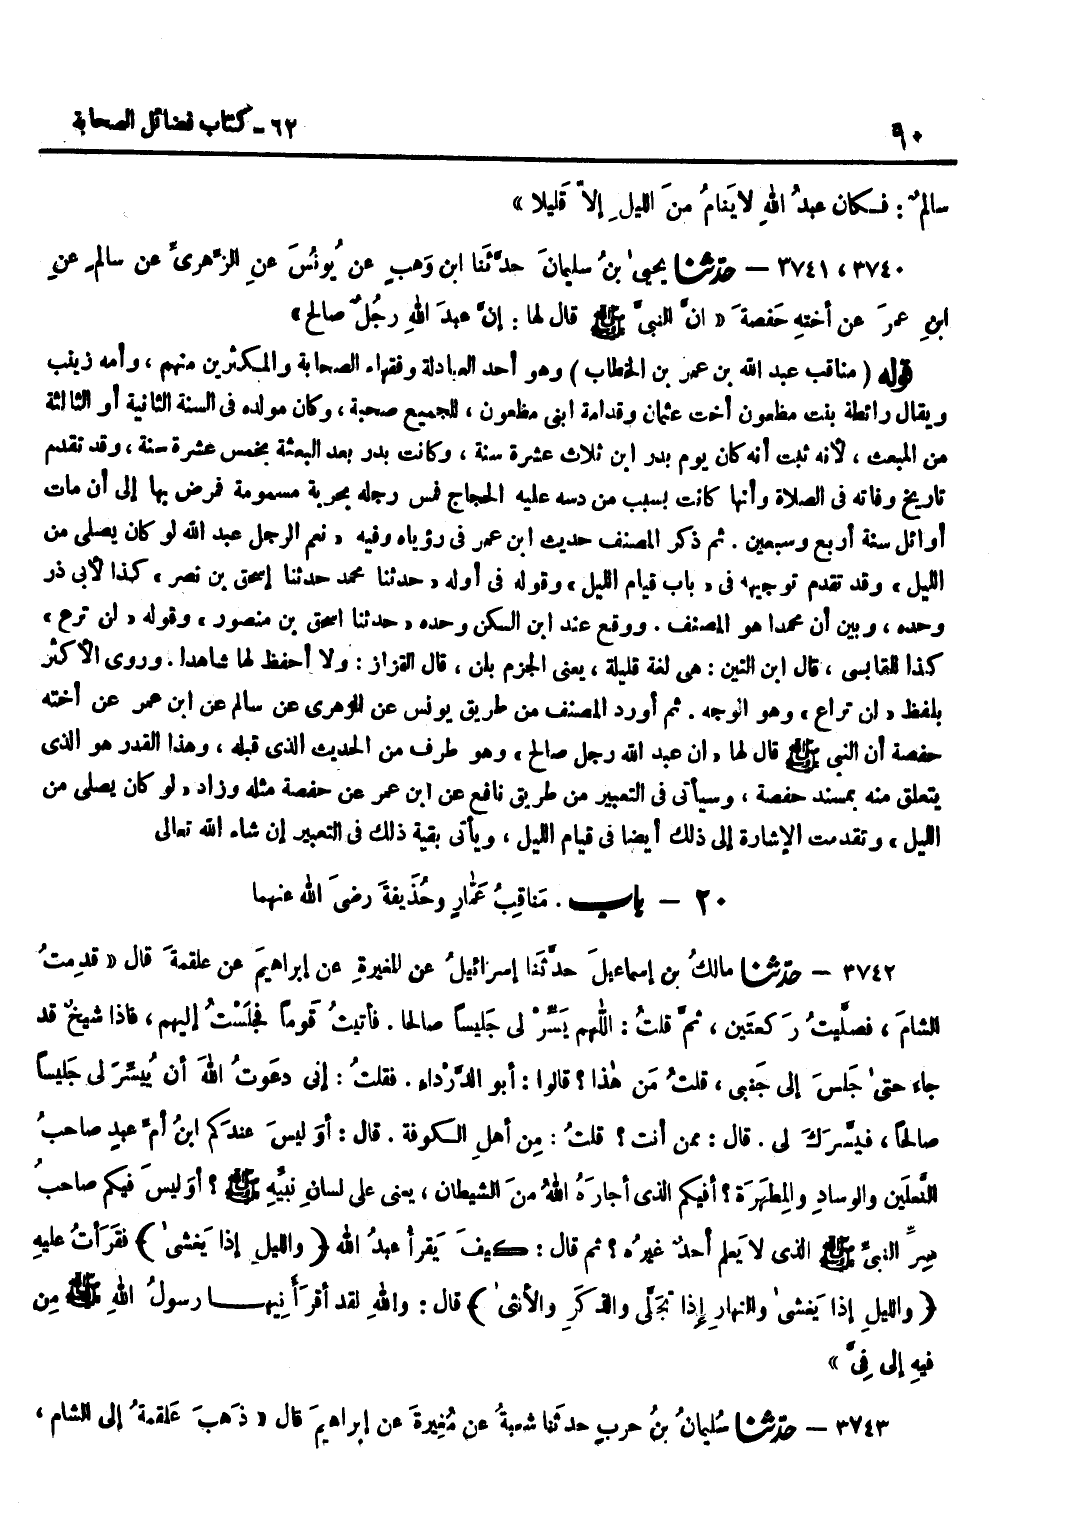 ٩٠
٦٢ - كتاب فضائل الصحابة
سالمٌ : فـكان عبدُ اللهِ لا يَنامُ منَ الليلِ إلاّ قَليلا »
٣٧٤٠ ، ٣٧٤١ – حدّثنا يحيىٰ بنُ سليمانَ حدَّثَنا ابن وَهبٍ عن يُونُسَ عنِ الزُّهرىِّ عن سالمٍ عنِ
ابنِ عمرَ عن أختهِ حَفصةَ « انَّ النبىَّ ﷺ قال لها : إنَّ عبدَ اللهِ رجُلٌ صالح »
قوله ( مناقب عبد الله بن عمر بن الخطاب ) وهو أحد العبادلة وفقهاء الصحابة والمكثرين منهم ، وأمه زينب
ويقال رائطة بنت مظعون أخت عثمان وقدامة ابنى مظعون ، للجميع صحبة ، وكان مولده فى السنة الثانية أو الثالثة
من المبعث ، لأنه ثبت أنه كان يوم بدر ابن ثلاث عشرة سنة ، وكانت بدر بعد البعثة بخمس عشرة سنة ، وقد تقدم
تاريخ وفاته فى الصلاة وأنها كانت بسبب من دسه عليه الحجاج فمس رجله بحربة مسمومة فمرض بها إلى أن مات
أوائل سنة أربع وسبعين . ثم ذكر المصنف حديث ابن عمر فى رؤياه وفيه « نعم الرجل عبد الله لو كان يصلى من
الليل » وقد تقدم توجيهه فى « باب قيام الليل » وقوله فى أوله « حدثنا محمد حدثنا إسحق بن نصر » كذا لأبى ذر
وحده ، وبين أن محمدا هو المصنف . ووقع عند ابن السكن وحده « حدثنا اسحق بن منصور » وقوله « لن ترع »
كذا للقابسى ، قال ابن التين : هى لغة قليلة ، يعنى الجزم بلن ، قال القزاز : ولا أحفظ لها شاهدا . وروى الأكثر
بلفظ « لن تراع » وهو الوجه . ثم أورد المصنف من طريق يونس عن الزهرى عن سالم عن ابن عمر عن أخته
حفصة أن النبى ﷺ قال لها « ان عبد الله رجل صالح » وهو طرف من الحديث الذى قبله ، وهذا القدر هو الذى
يتعلق منه بمسند حفصة ، وسيأتى فى التعبير من طريق نافع عن ابن عمر عن حفصة مثله وزاد « لو كان يصلى من
الليل » وتقدمت الإشارة إلى ذلك أيضا فى قيام الليل ، ويأتى بقية ذلك فى التعبير إن شاء الله تعالى
٢٠ – باب . مَناقِبُ عَمَّارٍ وحُذَيفةَ رضىَ الله عنهما
٣٧٤٢ – حدّثنا مالكُ بن إسماعيلَ حدَّثَنا إسرائيلُ عن المغيرةِ عن إبراهيمَ عن علقمةَ قال « قدِمتُ
الشامَ ، فصلَّيتُ رَكعتَين ، ثمَّ قلتُ : اللّٰهم يَسِّرْ لى جَليساً صالحا . فأتيتُ قَوماً فجلَسْتُ إليهم ، فاذا شيخٌ قد
جاء حتىٰ جَلسَ إلى جَنبى ، قلتُ مَن هٰذا ؟ قالوا : أبو الدَّرْداءِ . فقلتُ : إنى دعَوتُ اللهَ أن يُيسِّرَ لى جَليساً
صالحاً ، فيسَّرَكَ لى . قال : ممن أنت ؟ قلتُ : مِن أهلِ الـكوفة . قال : أوَ ليسَ عندَكم ابنُ أمِّ عبدٍ صاحبُ
النَّعلَين والوِسادِ والمِطهَرَة ؟ أفيكم الذى أجارَهُ اللهُ منَ الشيطان ، يعنى على لسانِ نبيِّهِ ﷺ ؟ أوَ ليسَ فيكم صاحبُ
سِرِّ النبىِّ ﷺ الذى لا يَعلم أحدٌ غيرُه ؟ ثم قال : كيفَ يَقرأ عبدُ الله ﴿ والليلِ إذا يَغشىٰ ﴾ فقَرَأتُ عليهِ
﴿ والليلِ إذا يَغشىٰ والنهارِ إذا تجَلَّى والذكَرِ والأنثىٰ ﴾ قال : واللهِ لقد أقرَأنيهـا رسولُ اللهِ ﷺ مِن
فيهِ إلى فِىَّ »
٣٧٤٣ – حدّثنا سُليمانُ بنُ حربٍ حدثَنا شعبةُ عن مُغِيرةَ عن إبراهيمَ قال « ذهَبَ عَلقمةُ إلى الشام ،